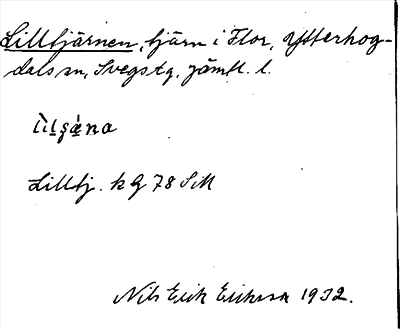 Lilltjärnen, tjärn i Flor, Ytterhog-
dals sn, Svegs tg, Jämtl. l.
Lilltj. k G 78 SiM
Nils Erik Eriksson 1932.